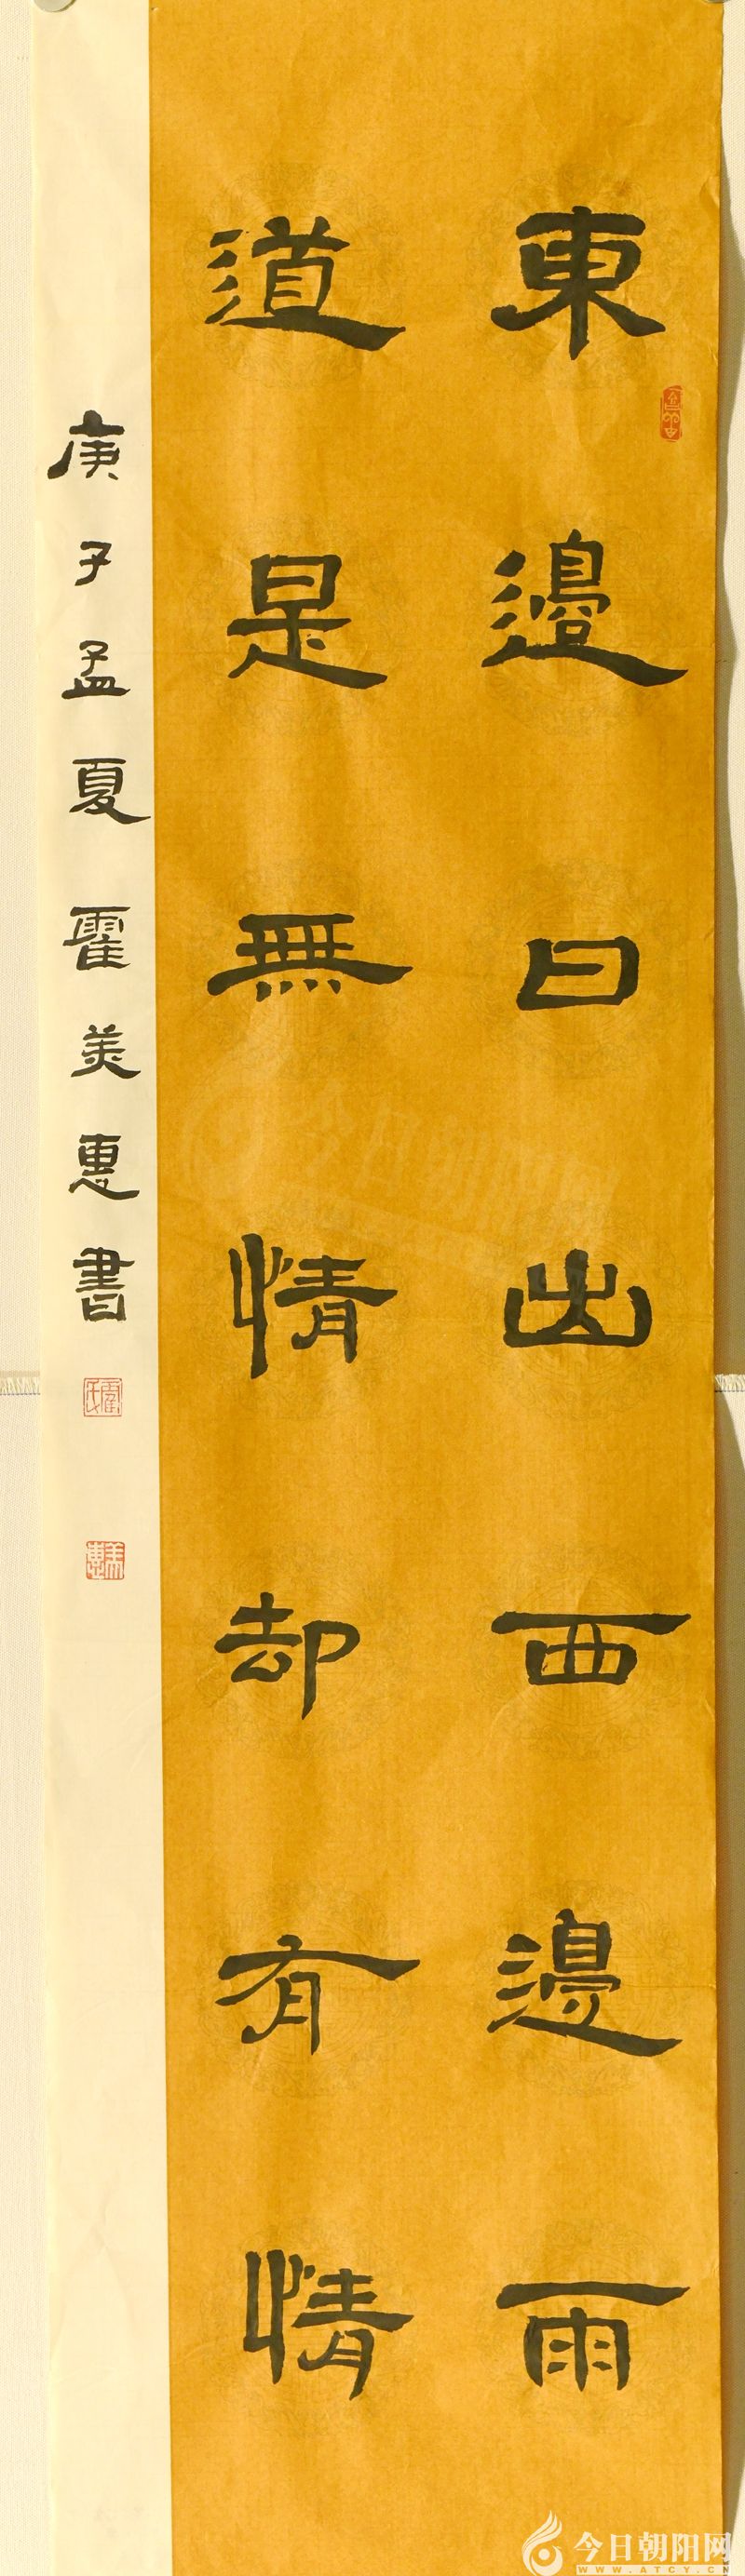 東邊日出西邊雨
道是無情却有情
庚子孟夏霍美惠書
霍氏
美惠
今日朝阳网
WWW.ATCY.CN